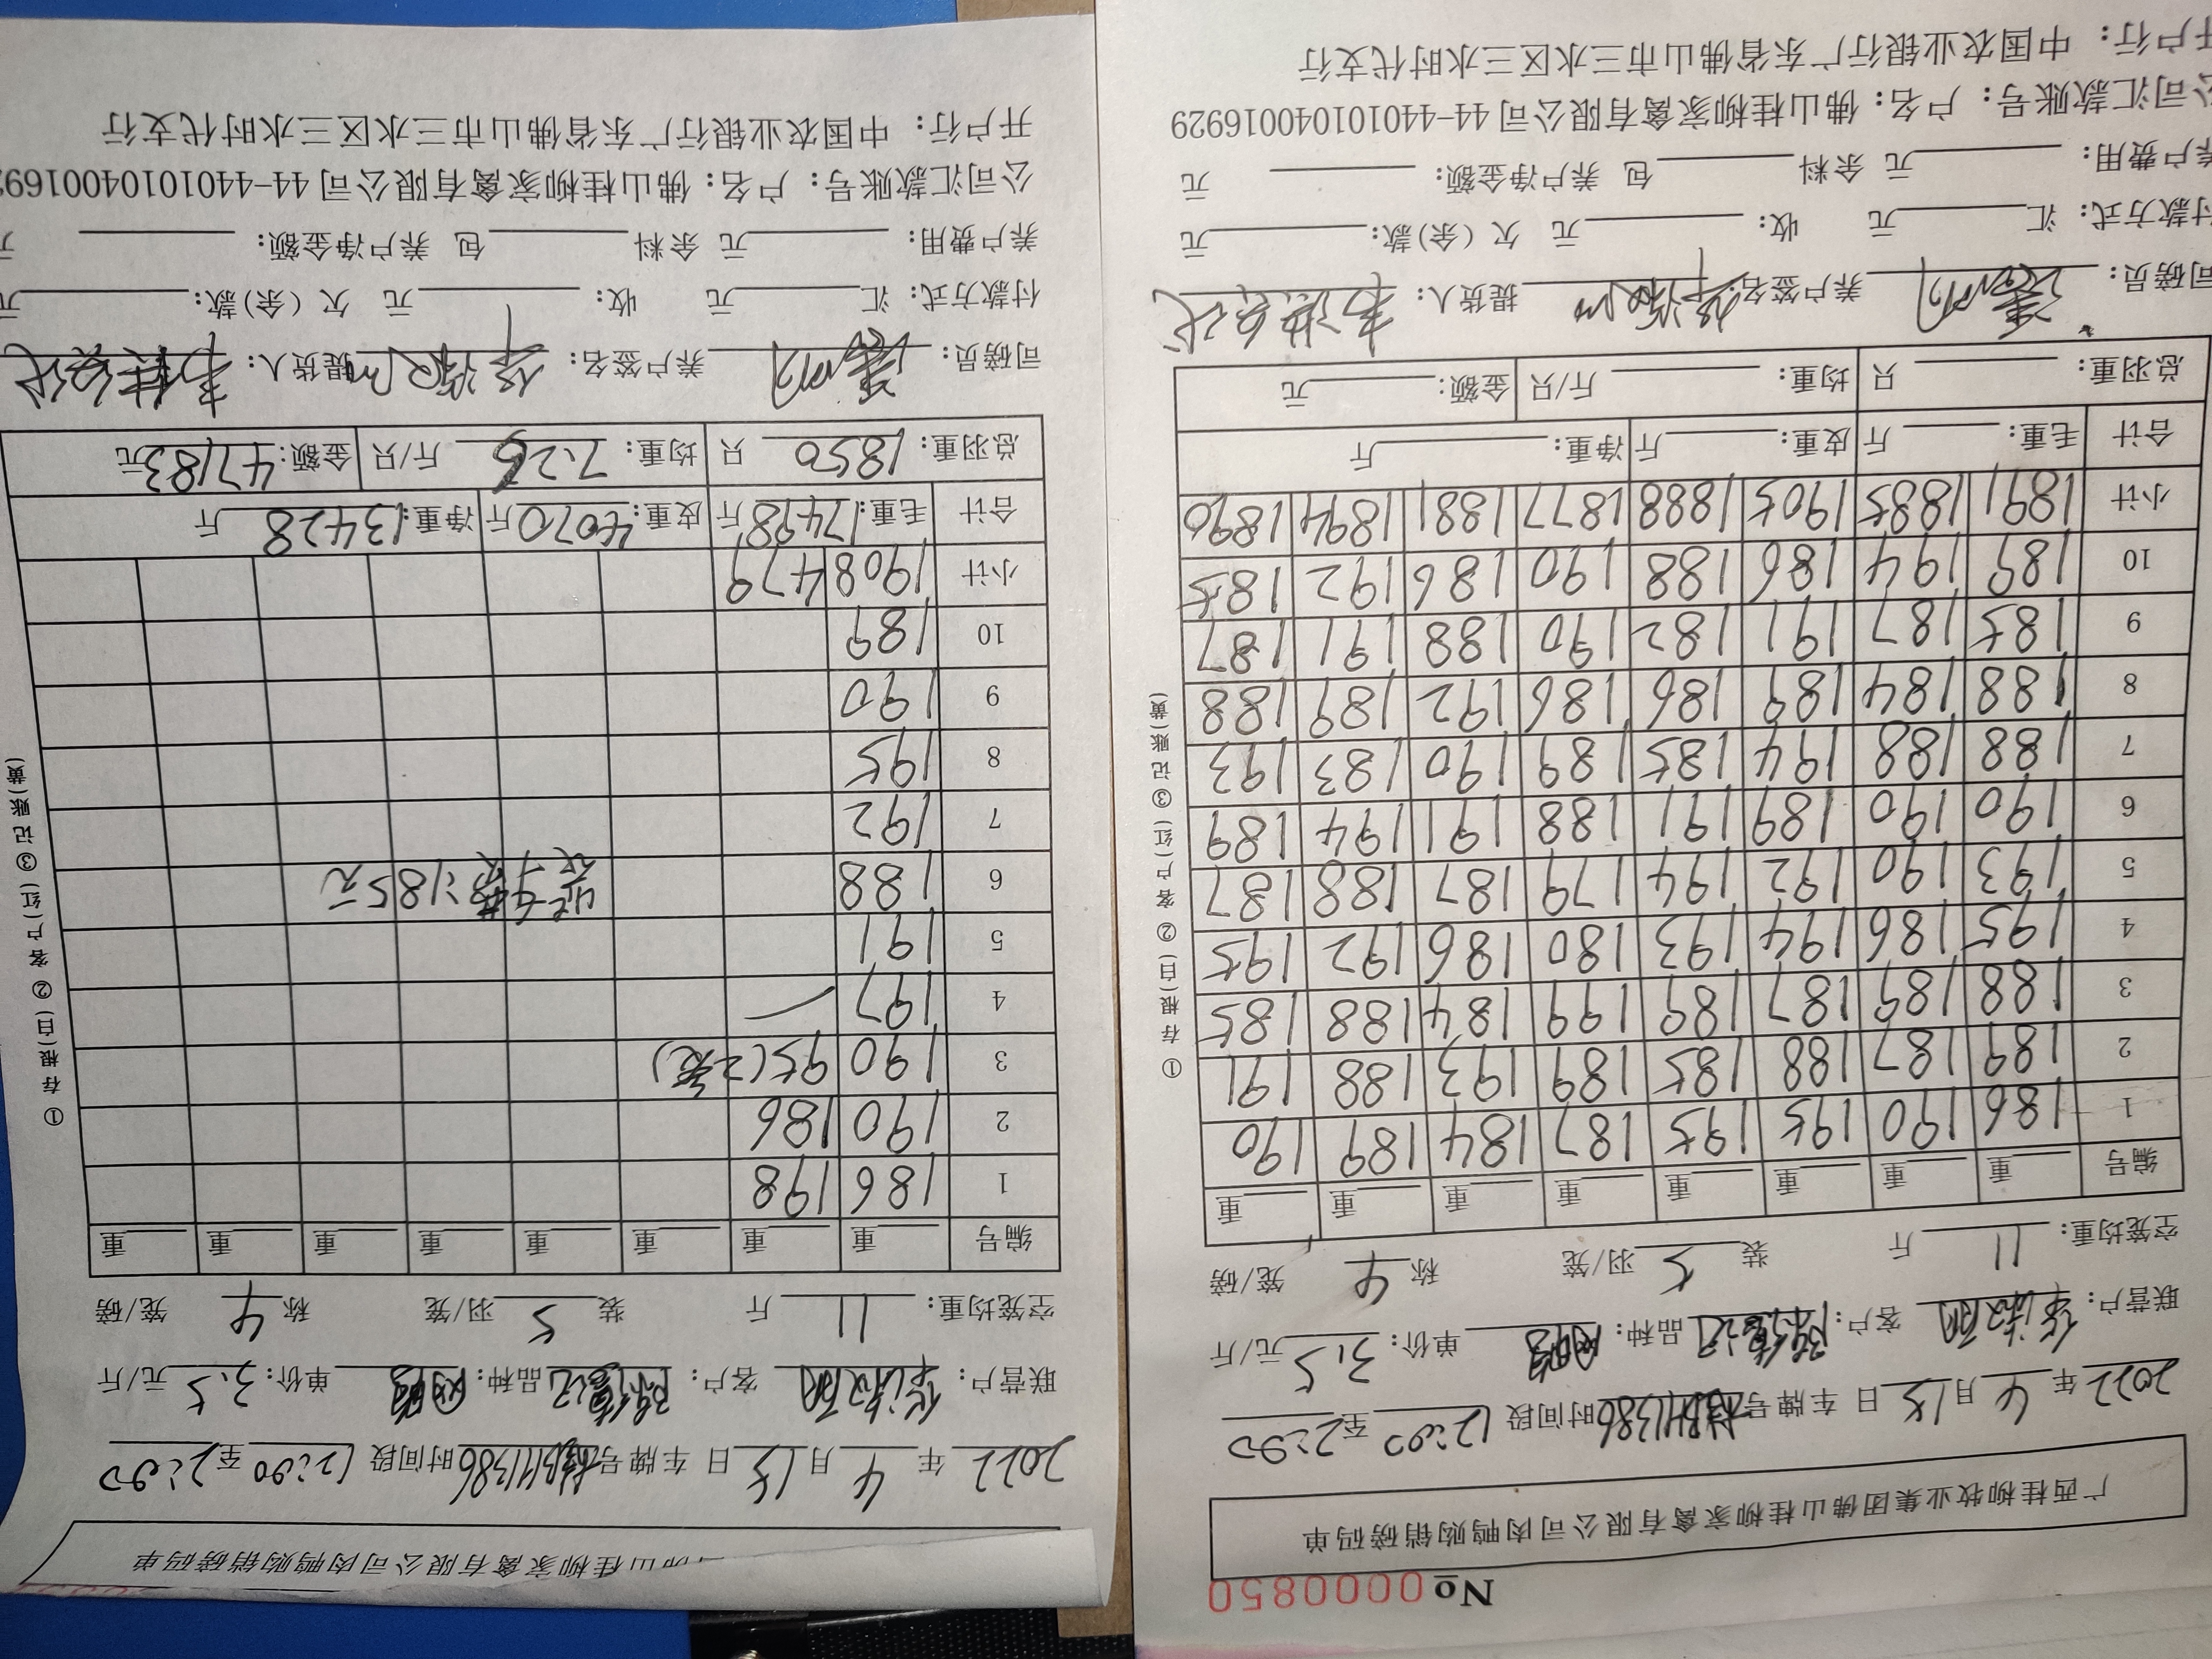 No 0000850
广西桂柳牧业集团佛山桂柳家禽有限公司肉鸭购销磅码单
2022年4月15日 车牌号 H1386 时间段 12:00至2:00
联营户: 客户: 品种: 单价:3.5元/斤
空笼均重:11斤 装5羽/笼 称4笼/磅
编号 重 重 重 重 重 重 重 重
1 186 190 195 195 187 184 189 190
2 189 187 188 185 189 193 188 191
3 188 189 187 189 199 184 188 185
4 195 186 194 193 180 186 192 195
5 193 190 192 194 179 187 188 187
6 190 190 189 191 188 191 194 189
7 188 188 194 185 189 190 183 193
8 188 184 189 186 186 192 189 188
9 185 187 191 182 190 188 191 187
10 189 194 186 188 190 186 192 185
小计 1891 1885 1905 1888 1877 1881 1894 1890
合计 毛重: 斤 皮重: 斤 净重: 斤
总羽重: 只 均重: 斤/只 金额: 元
司磅员: 养户签名: 提货人:
付款方式: 汇 元 收: 元 欠(余)款: 元
养户费用: 元 余料 包 养户净金额: 元
公司汇款账号: 户名: 佛山桂柳家禽有限公司 44-440101040016929
开户行: 中国农业银行广东省佛山市三水区三水时代支行
①存根(白) ②客户(红) ③记账(黄)
佛山桂柳家禽有限公司肉鸭购销磅码单
2022年4月15日 车牌号 H1386 时间段 12:00至2:00
联营户: 客户: 品种: 单价:3.5元/斤
空笼均重:11斤 装5羽/笼 称4笼/磅
编号 重 重 重 重 重 重 重 重
1 186 198
2 190 186
3 190 95(2笼)
4 197
5 191
6 188 185元
7 192
8 195
9 190
10 189
小计 1908 479
合计 毛重:17498斤 皮重:4070斤 净重:13428斤
总羽重:1850只 均重:7.26斤/只 金额:47183元
司磅员: 养户签名: 提货人:
付款方式: 汇 元 收: 元 欠(余)款: 元
养户费用: 元 余料 包 养户净金额: 元
公司汇款账号: 户名: 佛山桂柳家禽有限公司 44-4401010400169
开户行: 中国农业银行广东省佛山市三水区三水时代支行
①存根(白) ②客户(红) ③记账(黄)